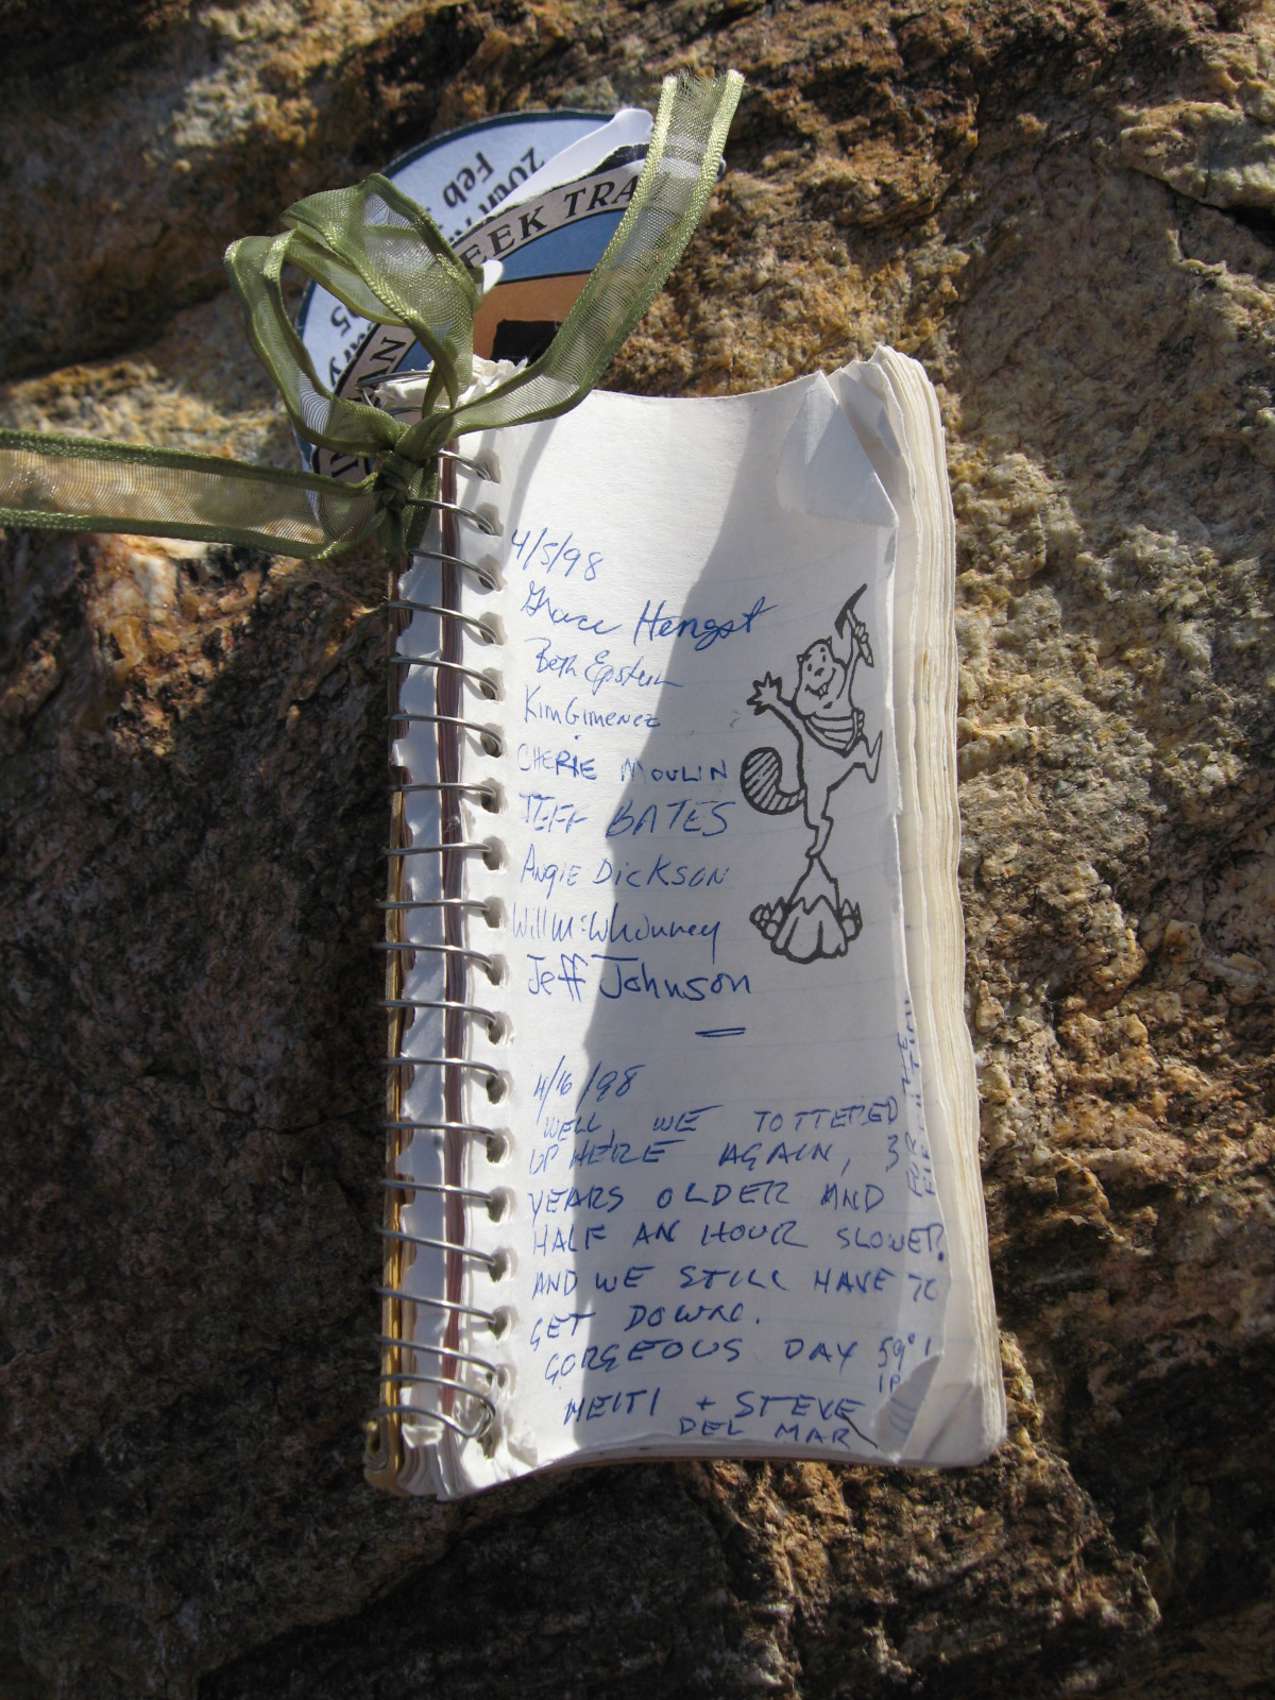 20th
Feb
EEK TRA
AN
5
4/5/98
Grace Hengst
Beth Epstein
Kim Gimenez
CHERIE MOULIN
JEFF BATES
ANGIE DICKSON
Will McWhinney
Jeff Johnson
4/16/98
WELL, WE TOTTERED
UP HERE AGAIN, 3
YEARS OLDER AND
HALF AN HOUR SLOWER.
AND WE STILL HAVE TO
GET DOWN.
GORGEOUS DAY 59°
HEITI + STEVE
DEL MAR
FOR THE